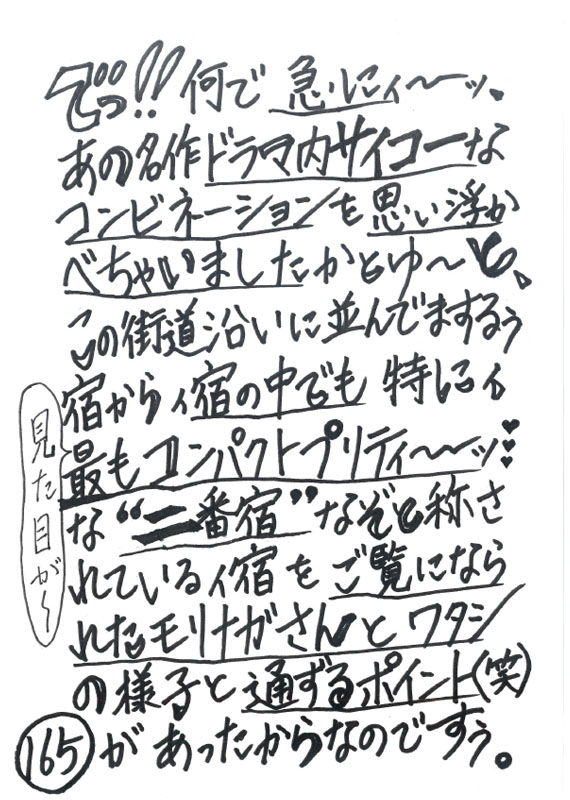 でっ!! 何で 急にィ〜〜ッ、
あの名作ドラマ内サイコーな
コンビネーションを思い浮か
べちゃいましたかとゆ〜と、
この街道沿いに並んでまするぅ
宿からィ宿の中でも 特にィ
最もコンパクトプリティ〜〜ッ♥♥♥
な“二番宿”なぞと称さ
れているィ宿を ご覧になら
れたモリナガさんと ワタシ
の様子と通ずるポイント(笑)
があったからなのですぅ。
見た目が〜
165